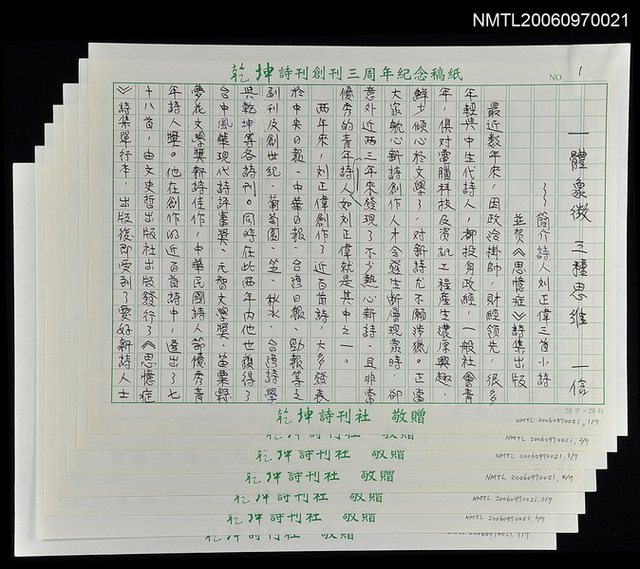 NMTL20060970021
乾坤詩刊創刊三周年紀念稿紙
NO. 1
一體象徵 三種思維 一信
~~簡介詩人刘正偉三首小詩
並賀《思憶症》詩集出版
最近数年來,因政治掛帥,財經領先,很多
年輕與中生代詩人,都投身政經,一般社會青
年,俱對電腦科技及資訊工程產生濃厚興趣,
鮮少傾心於文學了,对新詩尤不願涉獵。正當
大家躭心新詩創作人才会發生断層現象時,卻
意外近兩三年來發現了不少熱心新詩、且非常
優秀的青年詩人,如刘正偉就是其中之一。
兩年來,刘正偉創作了近百首詩,大多發表
於中央日報、中華日報、台湾日報、勁報等之
副刊及創世紀、葡萄園、笠、秋水、台湾詩學
與乾坤等各詩刊。同時在此兩年內他也獲得了
台中風華現代詩評審獎、元智文學獎、苗栗縣
夢花文學獎新詩佳作,中華民國詩人節優秀青
年詩人獎。他在創作的近百首詩中,選出了七
十八首,由文史哲出版社出版發行了《思憶症
》詩集單行本,出版後即受到了愛好新詩人士
20字×20行
乾坤詩刊社 敬贈
NMTL 20060970021, 1/7
乾坤詩刊社 敬贈
NMTL 20060970021, 2/7
乾坤詩刊社 敬贈
NMTL 20060970021, 3/7
乾坤詩刊社 敬贈
NMTL 20060970021, 4/7
乾坤詩刊社 敬贈
NMTL 20060970021, 5/7
乾坤詩刊社 敬贈
NMTL 20060970021, 6/7
乾坤詩刊社 敬贈
NMTL 20060970021, 7/7